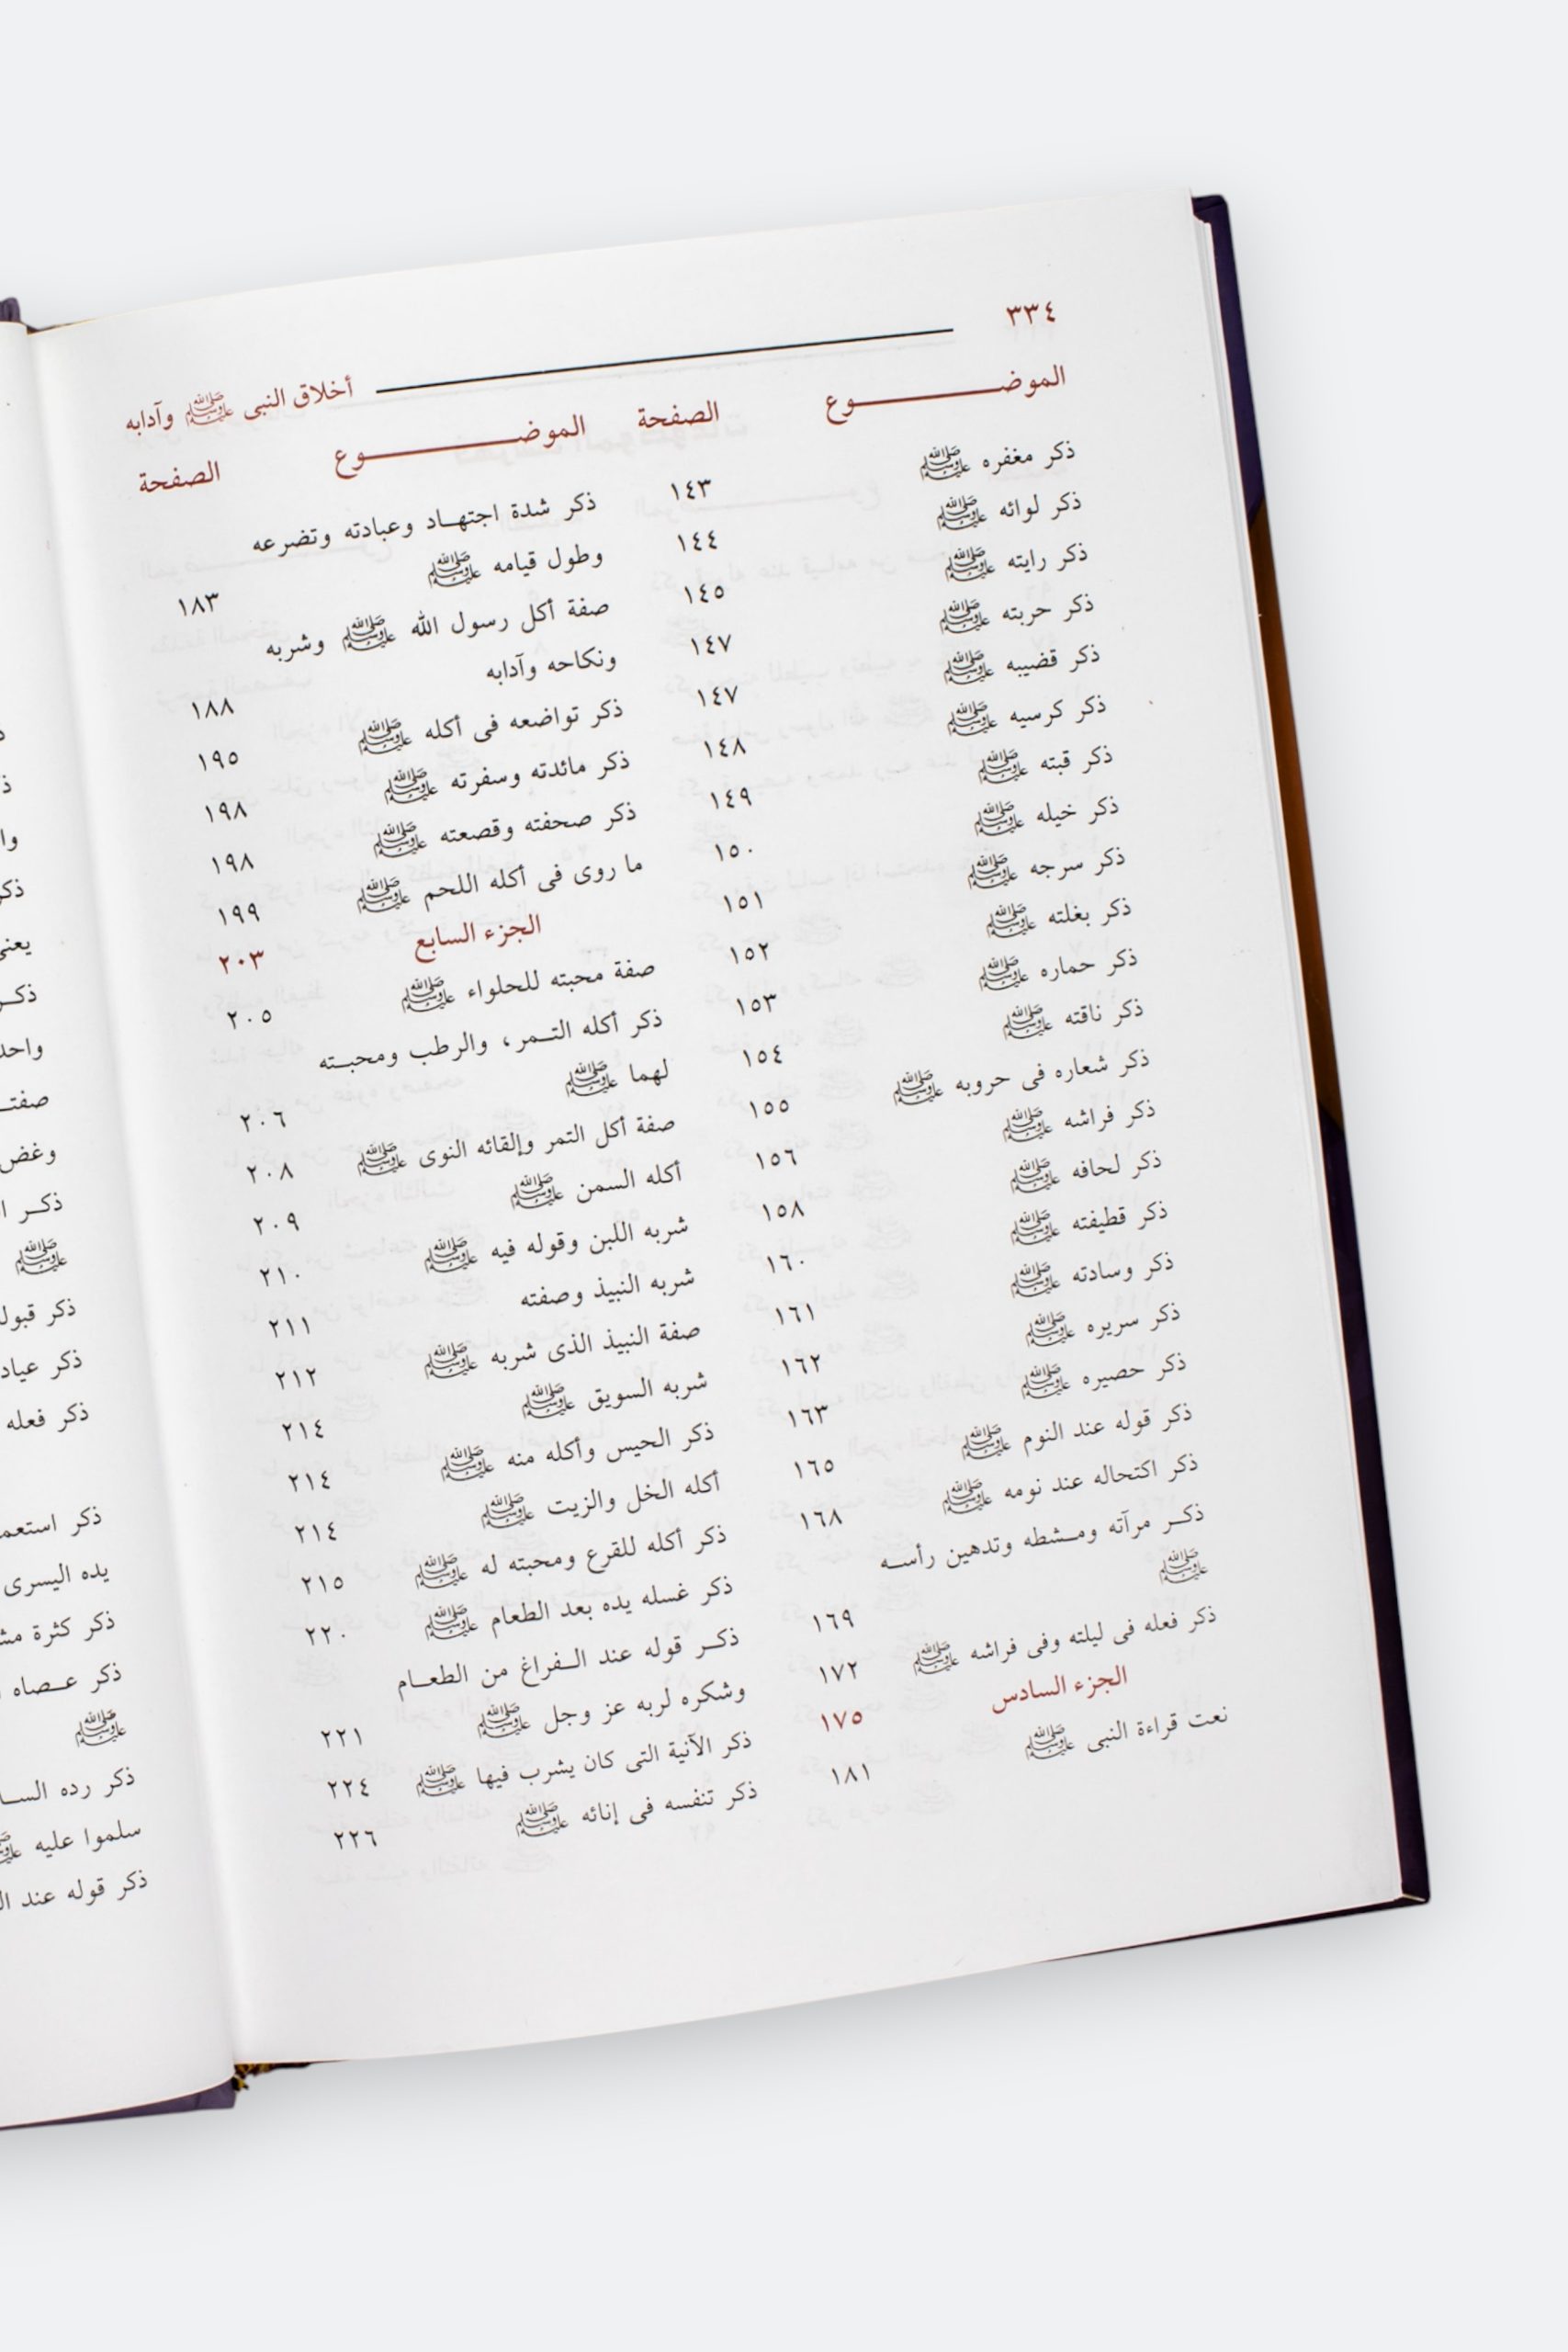 ٣٣٤
أخلاق النبى ﷺ وآدابه
الموضـــــــوع الصفحة
ذكر مغفره ﷺ ١٤٣
ذكر لوائه ﷺ ١٤٤
ذكر رايته ﷺ ١٤٥
ذكر حربته ﷺ ١٤٧
ذكر قضيبه ﷺ ١٤٧
ذكر كرسيه ﷺ ١٤٨
ذكر قبته ﷺ ١٤٩
ذكر خيله ﷺ ١٥٠
ذكر سرجه ﷺ ١٥١
ذكر بغلته ﷺ ١٥٢
ذكر حماره ﷺ ١٥٣
ذكر ناقته ﷺ ١٥٤
ذكر شعاره فى حروبه ﷺ ١٥٥
ذكر فراشه ﷺ ١٥٦
ذكر لحافه ﷺ ١٥٨
ذكر قطيفته ﷺ ١٦٠
ذكر وسادته ﷺ ١٦١
ذكر سريره ﷺ ١٦٢
ذكر حصيره ﷺ ١٦٣
ذكر قوله عند النوم ﷺ ١٦٥
ذكر اكتحاله عند نومه ﷺ ١٦٨
ذكـر مرآته ومـشطه وتدهين رأسـه
ﷺ ١٦٩
ذكر فعله فى ليلته وفى فراشه ﷺ ١٧٢
الجزء السادس ١٧٥
نعت قراءة النبى ﷺ ١٨١
الموضـــــــوع الصفحة
ذكر شدة اجتهـاد وعبادته وتضرعه
وطول قيامه ﷺ ١٨٣
صفة أكل رسول الله ﷺ وشربه
ونكاحه وآدابه ١٨٨
ذكر تواضعه فى أكله ﷺ ١٩٥
ذكر مائدته وسفرته ﷺ ١٩٨
ذكر صحفته وقصعته ﷺ ١٩٨
ما روى فى أكله اللحم ﷺ ١٩٩
الجزء السابع ٢٠٣
صفة محبته للحلواء ﷺ ٢٠٥
ذكر أكله التـمر، والرطب ومحبـته
لهما ﷺ ٢٠٦
صفة أكل التمر وإلقائه النوى ﷺ ٢٠٨
أكله السمن ﷺ ٢٠٩
شربه اللبن وقوله فيه ﷺ ٢١٠
شربه النبيذ وصفته ٢١١
صفة النبيذ الذى شربه ﷺ ٢١٢
شربه السويق ﷺ ٢١٤
ذكر الحيس وأكله منه ﷺ ٢١٤
أكله الخل والزيت ﷺ ٢١٤
ذكر أكله للقرع ومحبته له ﷺ ٢١٥
ذكر غسله يده بعد الطعام ﷺ ٢٢٠
ذكـر قوله عند الـفراغ من الطعـام
وشكره لربه عز وجل ﷺ ٢٢١
ذكر الآنية التى كان يشرب فيها ﷺ ٢٢٤
ذكر تنفسه فى إنائه ﷺ ٢٢٦
ذكر
واحد
وغض
ﷺ
ذكر
ذكر
ذكر فعله
ذكر
يده اليسرى
ذكر كثرة
ذكر عـصاه
ﷺ
ذكر رده
سلموا عليه
ذكر قوله عند